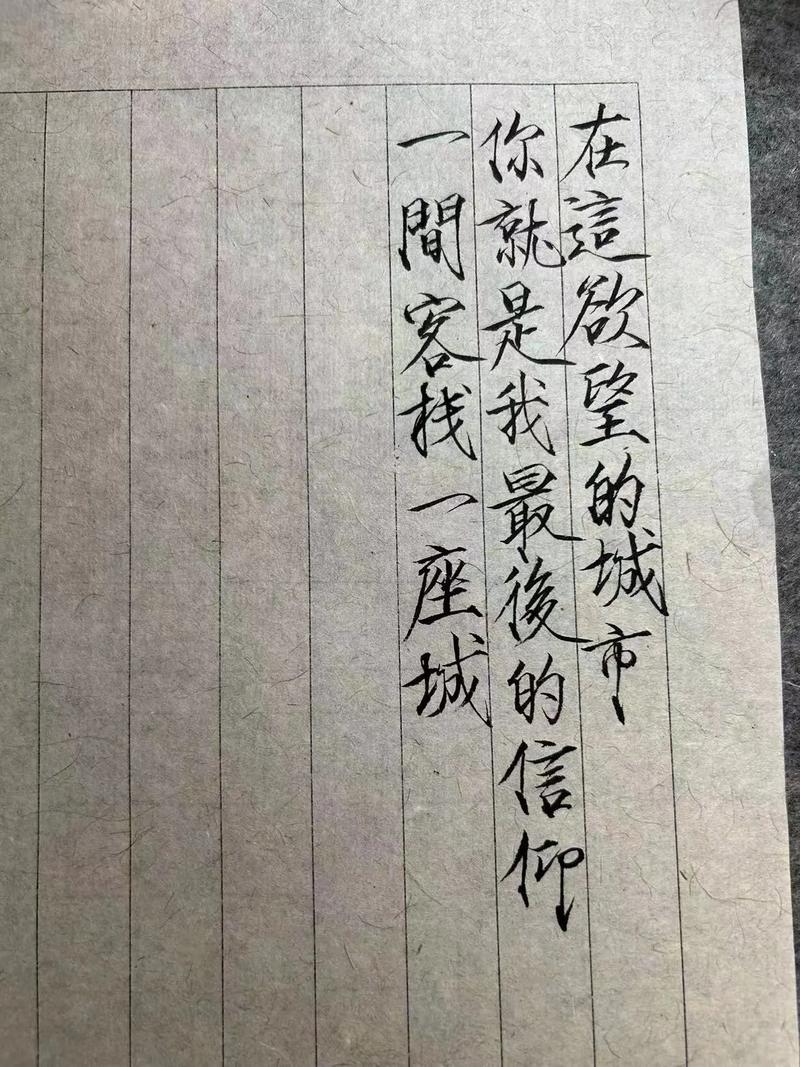 在這欲望的城市
你就是我最後的信仰
一間客栈一座城